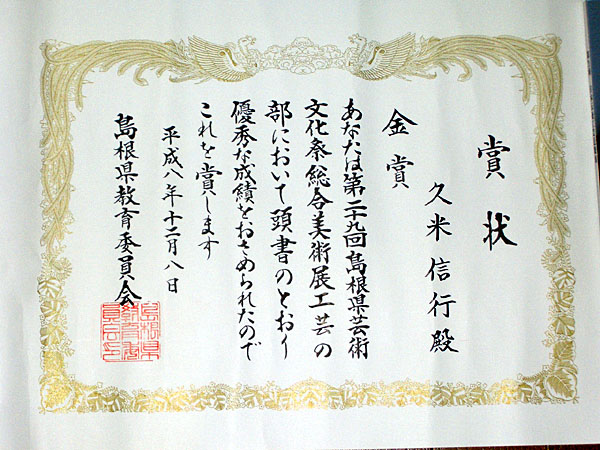 賞状
久米信行殿
金賞
あなたは第二十九回島根県芸術
文化祭総合美術展工芸の
部において頭書のとおり
優秀な成績をおさめられたので
これを賞します
平成八年十二月八日
島根県教育委員会
島根県
教育委
員会印